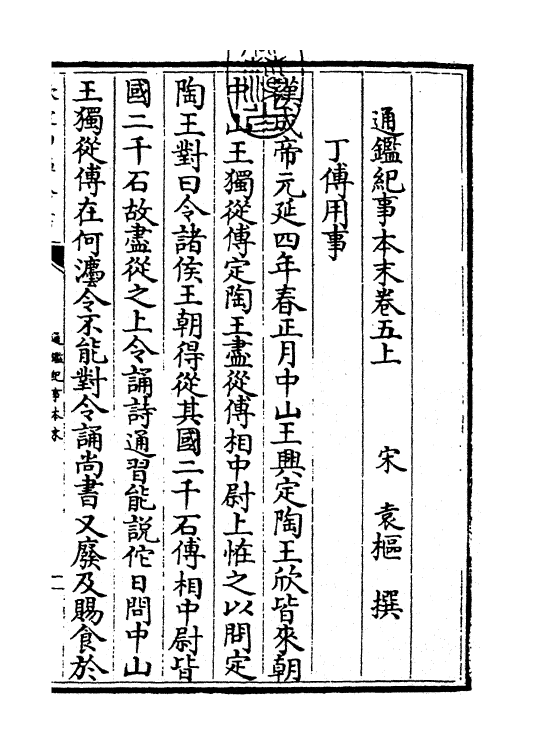 通鑑紀事本末卷五上
宋 袁樞 撰
丁傅用事
漢成帝元延四年春正月中山王興定陶王欣皆來朝
中山王獨從傅定陶王盡從傅相中尉上恠之以問定
陶王對曰令諸侯王朝得從其國二千石傅相中尉皆
國二千石故盡從之上令誦詩通習能說佗日問中山
王獨從傅在何灋令不能對令誦尚書又廢及賜食於
通鑑紀事本末